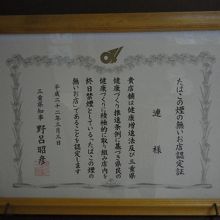 たばこの煙の無いお店認定証
漣 様
貴店舗は健康増進法及び三重県
健康づくり推進条例に基づき県民の
健康づくりに積極的に取り組み店内を
終日禁煙としている「たばこの煙の
無いお店」であることを認定します
平成二十二年三月五日
三重県知事 野呂昭彦